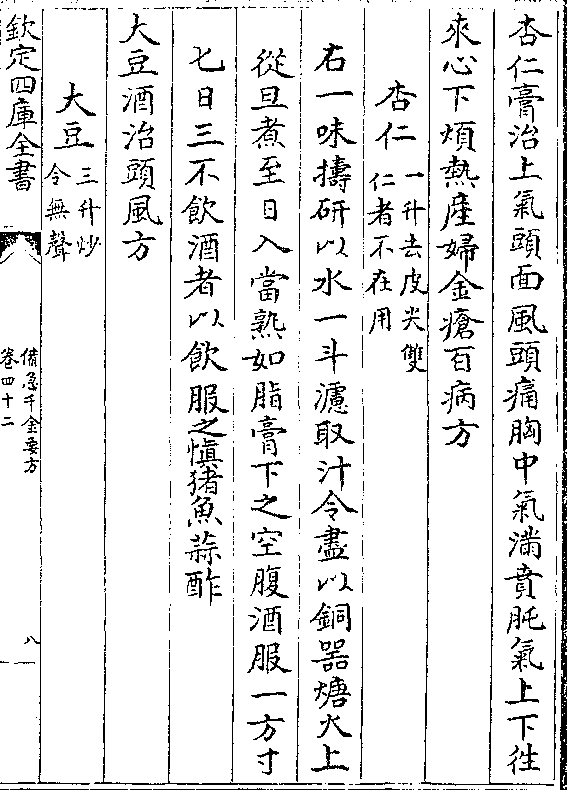 杏仁膏治上氣頭面風頭痛胸中氣滿賁肫氣上下徃
來心下煩熱産婦金瘡百病方
杏仁一升去皮尖雙
仁者不在用
右一味擣研以水一斗濾取汁令盡以銅器煻火上
從旦煮至日入當熟如脂膏下之空腹酒服一方寸
匕日三不飲酒者以飲服之慎猪魚蒜酢
大豆酒治頭風方
大豆三升炒
令無聲
欽定四庫全書
備急千金要方
卷四十二
八